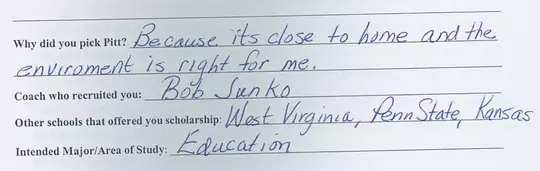 Why did you pick Pitt? Because its close to home and the
enviroment is right for me.
Coach who recruited you: Bob Junko
Other schools that offered you scholarship: West Virginia, Penn State, Kansas
Intended Major/Area of Study: Education